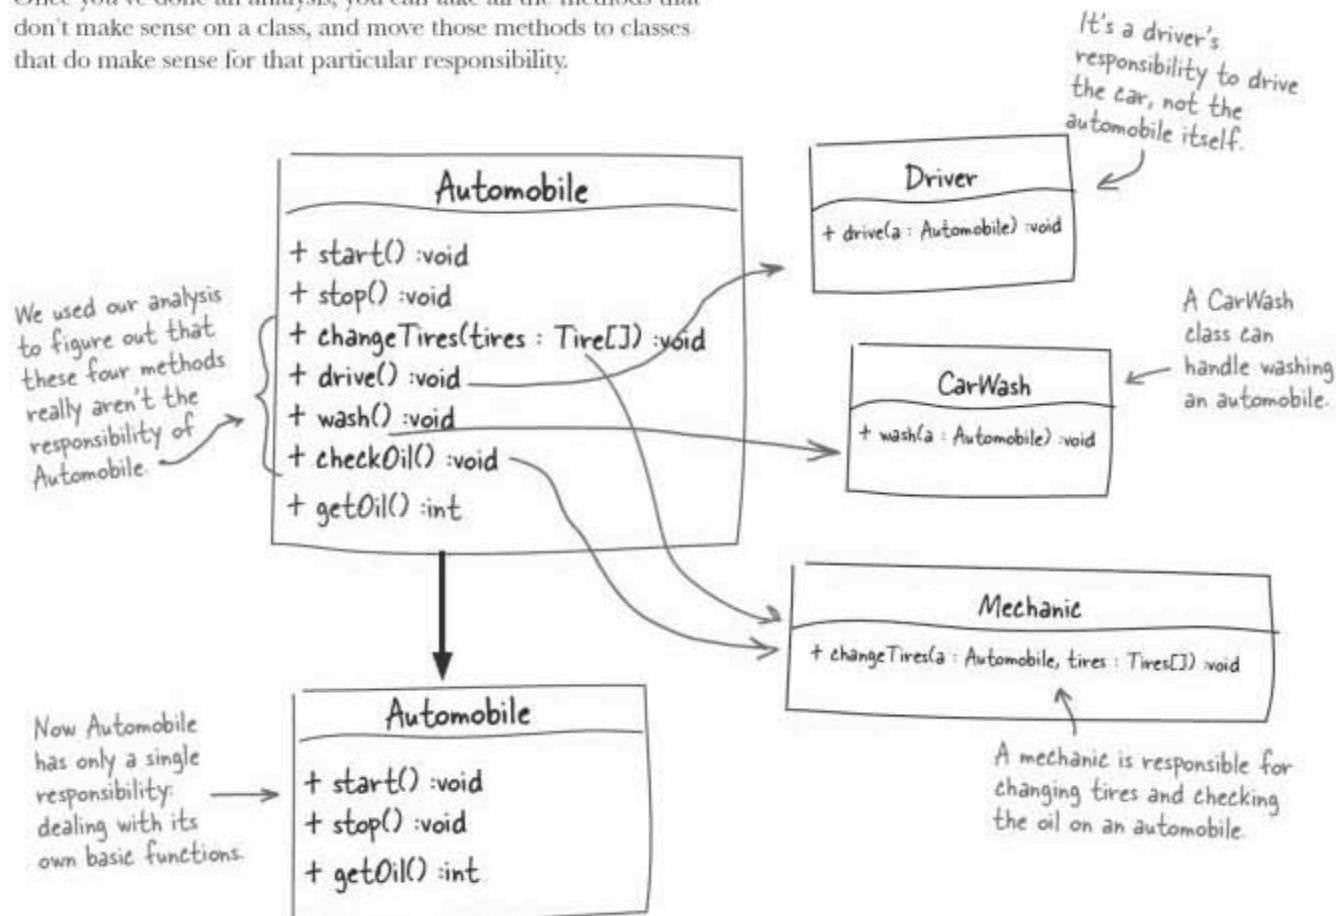 Once you've done an analysis, you can take all the methods that
don't make sense on a class, and move those methods to classes
that do make sense for that particular responsibility.
It's a driver's
responsibility to drive
the car, not the
automobile itself.
Automobile
+ start() :void
+ stop() :void
+ changeTires(tires : Tire[]) :void
+ drive() :void
+ wash() :void
+ checkOil() :void
+ getOil() :int
Driver
+ drive(a : Automobile) :void
We used our analysis
to figure out that
these four methods
really aren't the
responsibility of
Automobile.
A CarWash
class can
handle washing
an automobile.
CarWash
+ wash(a : Automobile) :void
Mechanic
+ changeTires(a : Automobile, tires : Tires[]) :void
A mechanic is responsible for
changing tires and checking
the oil on an automobile.
Now Automobile
has only a single
responsibility:
dealing with its
own basic functions.
Automobile
+ start() :void
+ stop() :void
+ getOil() :int